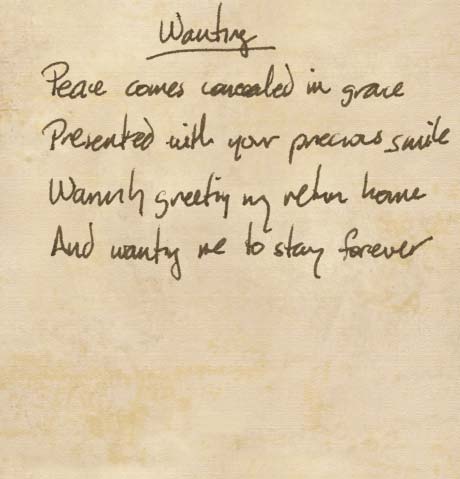 Wanting
Peace comes concealed in grace
Presented with your precious smile
Warmly greeting my return home
And wanting me to stay forever